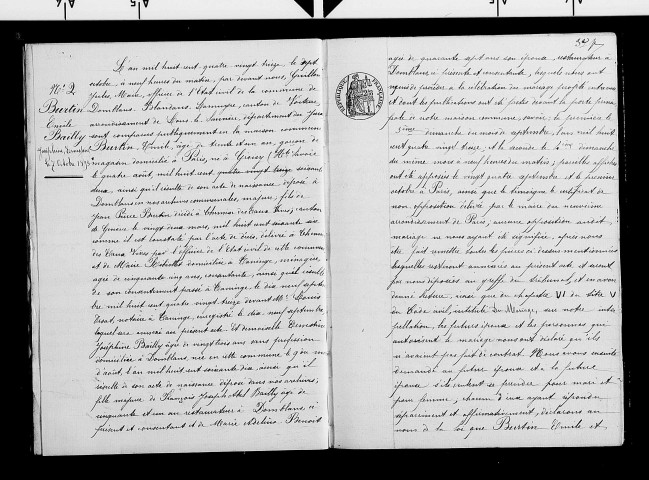 N° 9
Burtin
Emile
Bailly
Joséphine, Ernestine
Le 7 Octobre 1893
L'an mil huit cent quatre vingt treize le sept
octobre à neuf heures du matin, par devant nous, Guillon
Jules, Maire, officier de l'état civil de la commune de
Domblans, canton de Voiteur,
arrondissement de Lons le Saunier, département du Jura
sont comparus publiquement en la maison commune
Burtin, Emile, âgé de trente et un ans, garçon de
magasin, domicilié à Paris, né à (Hte Savoie
le quatre août, mil huit cent soixante
deux, ainsi qu'il résulte de son acte de naissance déposé à
Domblans en nos archives communales, majeur, fils de
Jean Pierre Burtin décédé à Chêne des Eaux Vives, canton
de Genève le vingt deux mars, mil huit cent soixante six
comme il est constaté par l'acte de décès, délivré à Chêne
des Eaux Vives par l'officier de l'état civil de cette commune
et de Marie domiciliée à Taninge, ménagère,
âgée de cinquante cinq ans, consentante, ainsi qu'il résulte
de son consentement passé à Taninge le dix neuf septem
bre mil huit cent quatre vingt treize devant Me
notaire à Taninge, enregistré le dix neuf septembre
lequel sera annexé au présent acte. Et demoiselle Ernestine
Joséphine Bailly âgée de vingt trois ans sans profession
domiciliée à Domblans née en cette commune le
d'août, l'an mil huit cent soixante dix, ainsi qu'il
résulte de son acte de naissance déposé dans nos archives,
fille majeure de François Joseph Abel Bailly âgé de
cinquante et un ans restaurateur à Domblans, ci
présent et consentant et de Marie Adeline Benoit
âgée de quarante sept ans son épouse, restaurateur à
Domblans ci présente et consentante, lesquels nous ont
requis de procéder à la célébration du mariage projeté entre eux
et dont les publications ont été faites devant la porte princi
pale de notre maison commune, savoir: la première le
dimanche du mois de septembre, l'an mil huit
cent quatre vingt treize; et la seconde le dimanche
du même mois à neuf heures du matin; pareilles affiches
ont été apposées le vingt quatre septembre et le premier
octobre à Paris, ainsi que le témoigne le certificat de
non opposition délivré par le maire du neuvième
arrondissement de Paris, aucune opposition audit
mariage ne nous ayant été signifiée, après nous
être fait remettre toutes les pièces ci-dessus mentionnées
lesquelles resteront annexées au présent acte et seront
par nous déposées au greffe du tribunal, et en avoir
donné lecture, ainsi que du chapitre VI du titre V
du Code civil, intitulé du Mariage, sur notre inter
pellation, les futurs époux et les personnes qui
autorisent le mariage nous ont déclaré qu'ils
n'avaient pas fait de contrat. Nous avons ensuite
demandé au futur époux et à la future
épouse s'ils veulent se prendre pour mari et
pour femme, chacun d'eux ayant répondu
séparément et affirmativement, déclarons au
nom de la loi que Burtin Emile et